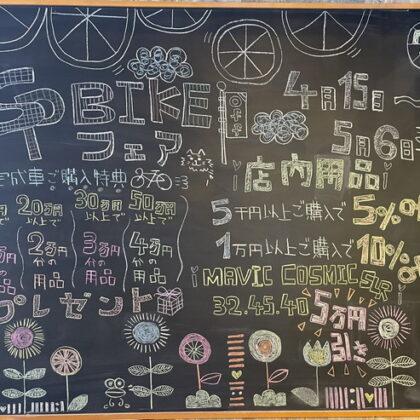 BIKE
フェア
4月15日
5月6日
完成車ご購入特典
20万円以上で
30万円以上で
50万円以上で
2万円分の用品
3万円分の用品
4万円分の用品
プレゼント
店内用品
5千円以上ご購入で 5%
1万円以上ご購入で 10%
MAVIC COSMIC SLR
32.45.40
5万円引き